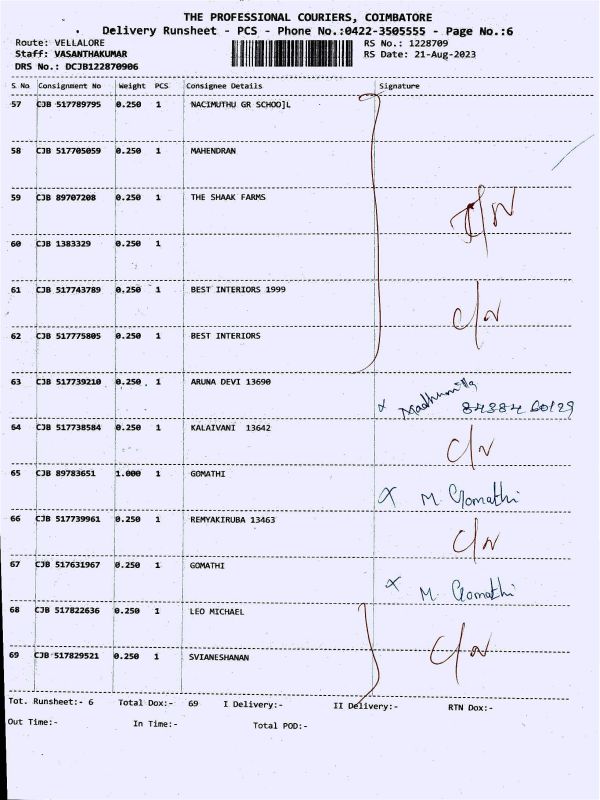 THE PROFESSIONAL COURIERS, COIMBATORE
Delivery Runsheet - PCS - Phone No.:0422-3505555 - Page No.:6
Route: VELLALORE RS No.: 1228709
Staff: VASANTHAKUMAR RS Date: 21-Aug-2023
DRS No.: DCJB122870906
S No Consignment No Weight PCS Consignee Details Signature
57 CJB 517789795 0.250 1 NACIMUTHU GR SCHOO]L
58 CJB 517705059 0.250 1 MAHENDRAN
59 CJB 89707208 0.250 1 THE SHAAK FARMS C/N
60 CJB 1383329 0.250 1
61 CJB 517743789 0.250 1 BEST INTERIORS 1999 C/N
62 CJB 517775805 0.250 1 BEST INTERIORS
63 CJB 517739210 0.250 1 ARUNA DEVI 13690 x Madhumitha
64 CJB 517738584 0.250 1 KALAIVANI 13642 C/N
65 CJB 89783651 1.000 1 GOMATHI x M. Gomathi
66 CJB 517739961 0.250 1 REMYAKIRUBA 13463 C/N
67 CJB 517631967 0.250 1 GOMATHI x M. Gomathi
68 CJB 517822636 0.250 1 LEO MICHAEL C/N
69 CJB 517829521 0.250 1 SVIANESHANAN
Tot. Runsheet:- 6 Total Dox:- 69 I Delivery:- II Delivery:- RTN Dox:-
Out Time:- In Time:- Total POD:-